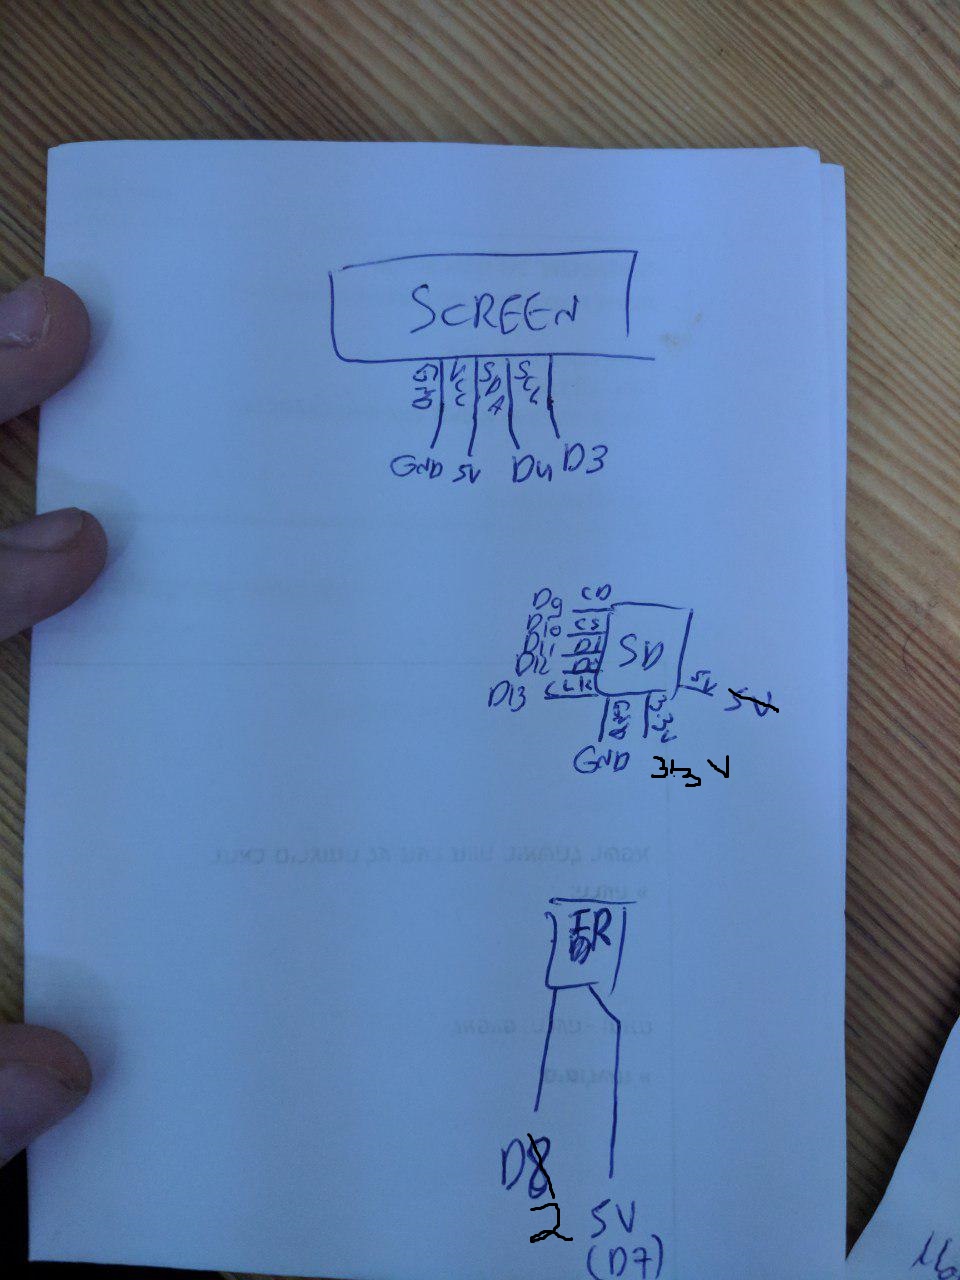 SCREEN
GND VCC SDA SCL
GND 5V D4 D3
D9 CD
D10 CS
D11 DI
SD
D12 DO
D13 CLK
5V 5V
GND 3.3V
GND 3.3V
IR
D8
2 5V
(D7)